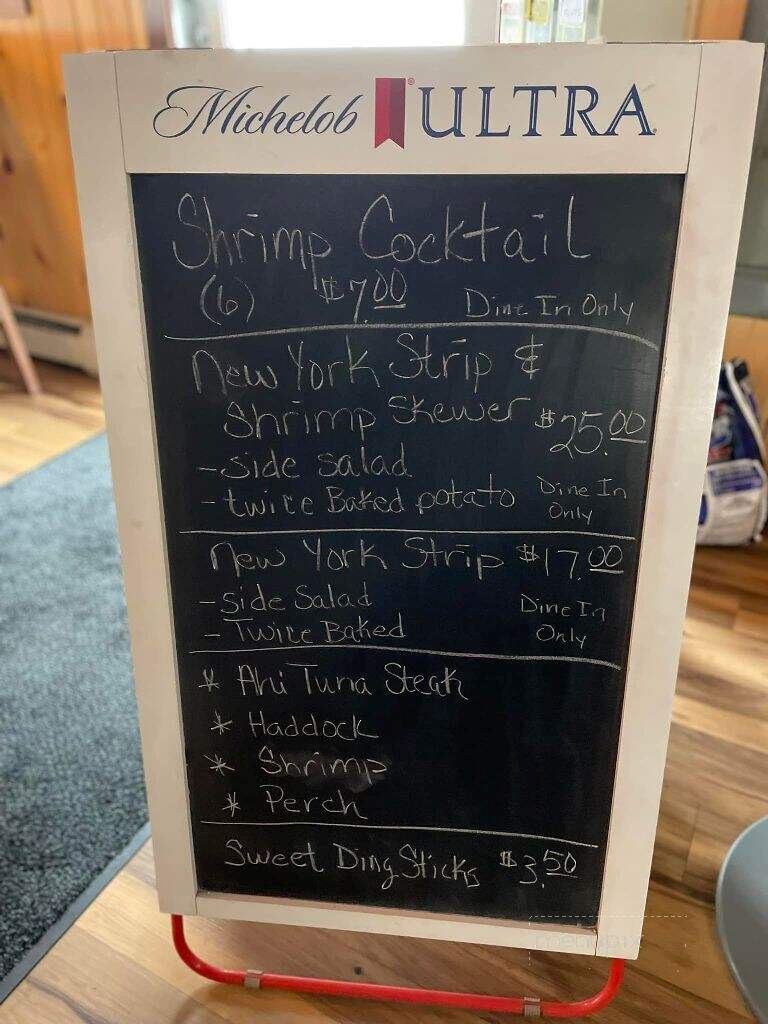 Michelob ULTRA
Shrimp Cocktail
(6) $7.00 Dine In Only
New York Strip &
Shrimp Skewer $25.00
- side salad
- twice Baked potato Dine In Only
New York Strip $17.00
- Side Salad
- Twice Baked Dine In Only
* Ahi Tuna Steak
* Haddock
* Shrimp
* Perch
Sweet Ding Sticks $3.50
menupix